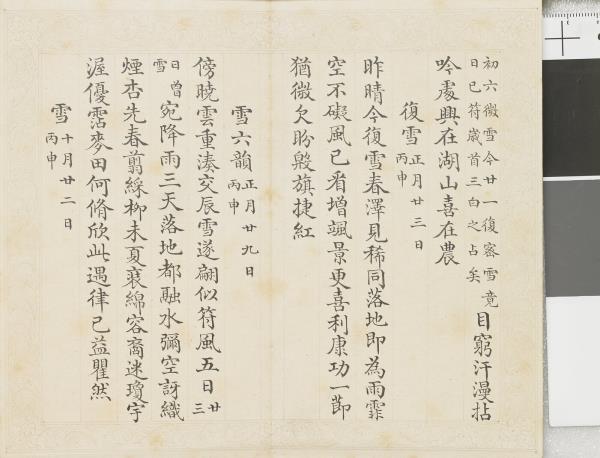 初六微雪今廿一復密雪竟
日已符歲首三白之占矣
目窮汗漫拈
吟處興在湖山喜在農
復雪
正月廿三日
丙申
昨晴今復雪春澤見稀同落地即為雨霏
空不礙風已看增颯景更喜利康功一節
猶微欠盼毀旗捷紅
雪六韻
正月廿九日
丙申
傍曉雲重湊交辰雪遂翩似符風五日廿三
日曾雪宛降雨三天落地都融水彌空訝織
煙杏先春翦綵柳未夏裝綿容裔迷瓊宇
渥優霑麥田何脩欣此遇律己益瞿然
雪
十月廿二日
丙申